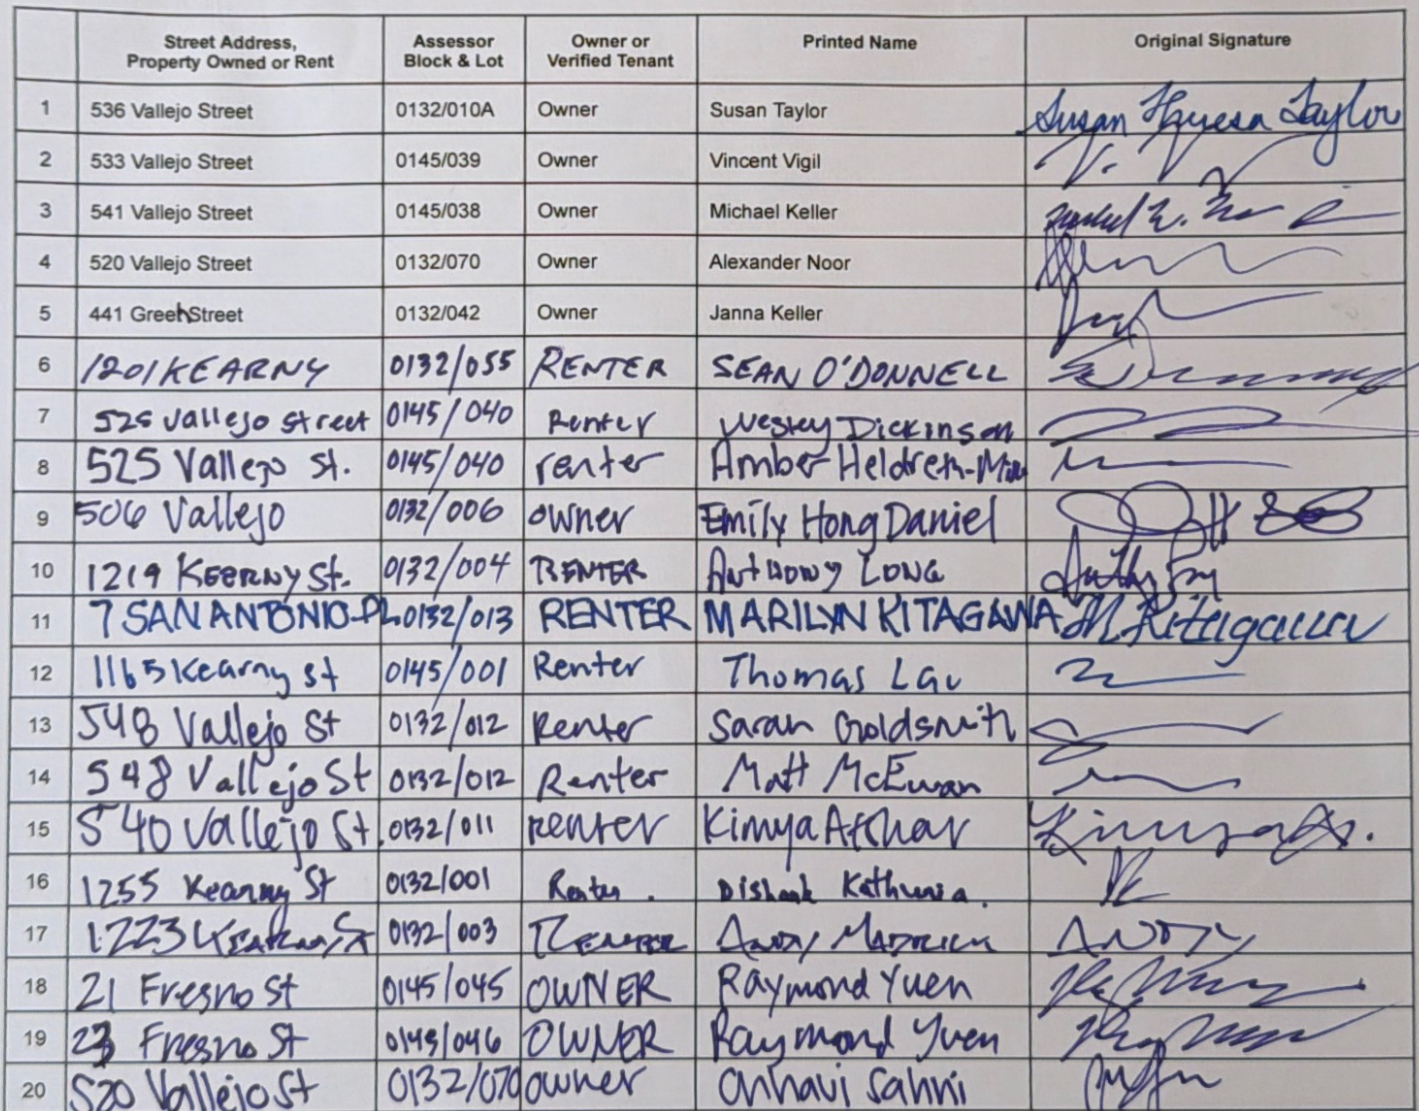 Street Address, Property Owned or Rent Assessor Block & Lot Owner or Verified Tenant Printed Name Original Signature
1 536 Vallejo Street 0132/010A Owner Susan Taylor Susan Theresa Taylor
2 533 Vallejo Street 0145/039 Owner Vincent Vigil
3 541 Vallejo Street 0145/038 Owner Michael Keller
4 520 Vallejo Street 0132/070 Owner Alexander Noor
5 441 Green Street 0132/042 Owner Janna Keller
6 1201 KEARNY 0132/055 RENTER SEAN O'DONNELL
7 525 Vallejo Street 0145/040 Renter Wesley Dickinson
8 525 Vallejo St. 0145/040 renter Amber Heldreth-
9 506 Vallejo 0132/006 owner Emily Hong Daniel
10 1219 KEERNY St. 0132/004 RENTER ANTHONY LONG
11 7 SAN ANTONIO PL 0132/013 RENTER MARILYN KITAGAWA M Kitagawa
12 1165 Kearny St 0145/001 Renter Thomas Lau
13 548 Vallejo St 0132/012 Renter Sarah Goldsmith
14 548 Vallejo St 0132/012 Renter Matt McEwan
15 540 Vallejo St. 0132/011 renter Kimya Afshar
16 1255 Kearny St 0132/001 Renter. Dishank Kathuria.
17 1223 Kearny St 0132/003 RENTER ANDY ANDY
18 21 Fresno St 0145/045 OWNER Raymond Yuen
19 23 Fresno St 0145/046 OWNER Raymond Yuen
20 520 Vallejo St 0132/070 owner Sahni